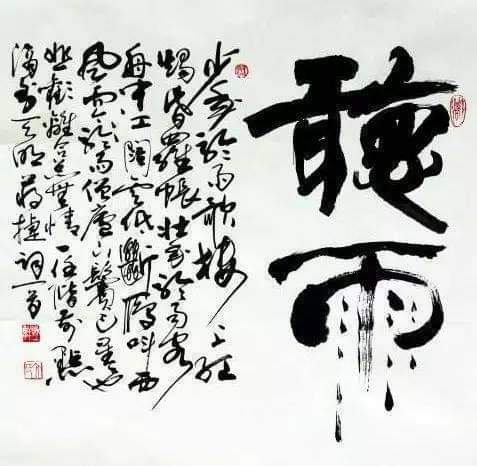 聽雨
少年聽雨歌樓上紅
燭昏羅帳壯年聽雨客
舟中江闊雲低斷雁叫西
風而今聽雨僧廬下鬢已星星也
悲歡離合總無情一任階前點
滴到天明蔣捷詞一首